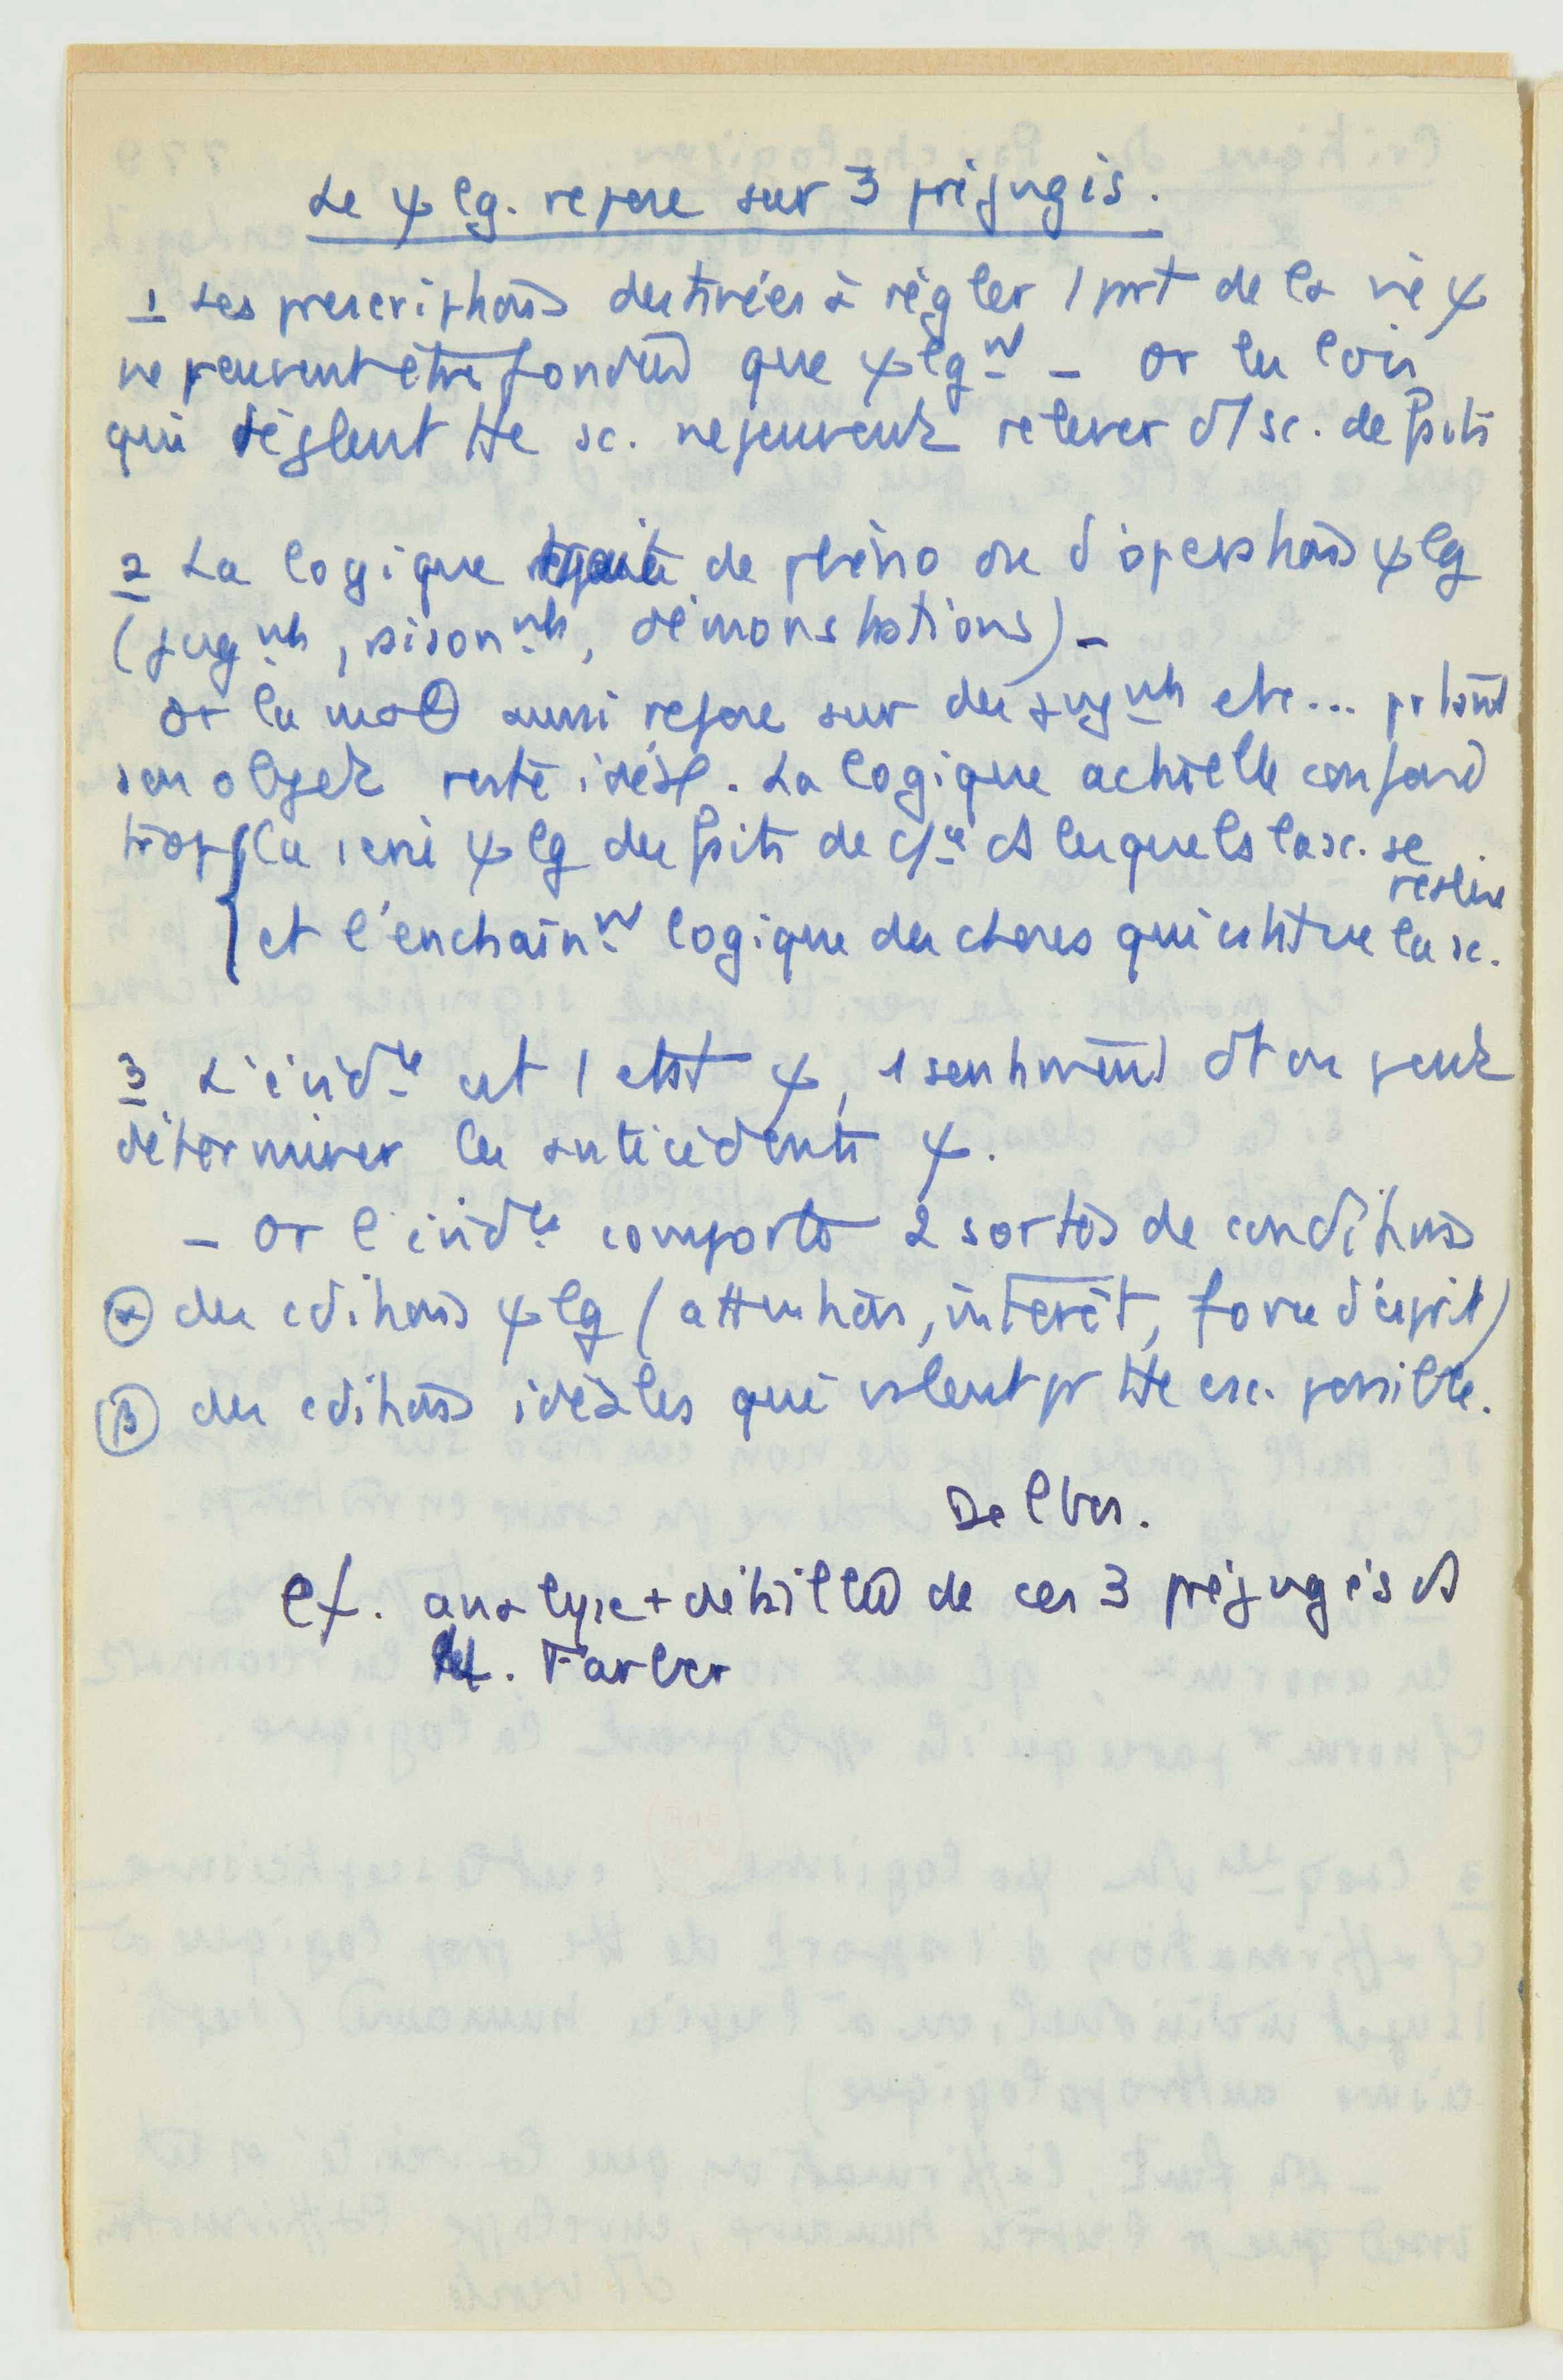 Le ψ lg. repose sur 3 préjugés.
1 Les prescriptions destinées à régler 1 prt de la vie ψ
ne peuvent être fondées que ψ lgnt – or les lois
qui règlent tte sc. ne peuvent relever d'1 sc. de faits
2 La logique de phéno ou d'opérations ψ lg
(jugnts, raisonnts, démonstrations) –
or la maθ aussi repose sur des jugnts etc... prtant
son objet reste idéal. La logique actuelle confond
trop la série ψ lg des faits de csce ds lesquels la sc. se
réalise
et l'enchaînnt logique des choses qui cstitue la sc.
3 L'évidce est 1 état ψ, 1 sentiment dt on peut
déterminer les antécédents ψ.
– or l'évidce comporte 2 sortes de conditions
α des cditions ψ lg (attention, intérêt, force d'esprit)
β des cditions idéales qui valent pr tte csc. possible.
Delbos.
Cf. analyse + détaillée de ces 3 préjugés ds
M. Farber